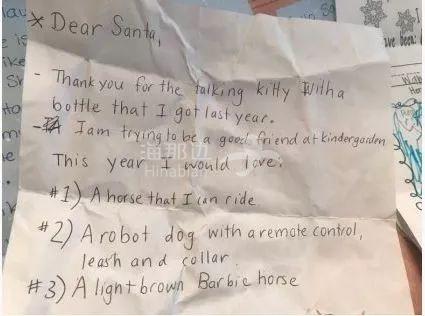 * Dear Santa,
- Thank you for the talking kitty with a
bottle that I got last year.
- I am trying to be a good friend at kindergarden
This year I would love:
#1) A horse that I can ride
#2) A robot dog with a remote control,
leash and collar
#3) A light brown Barbie horse
海那边
Hinabian